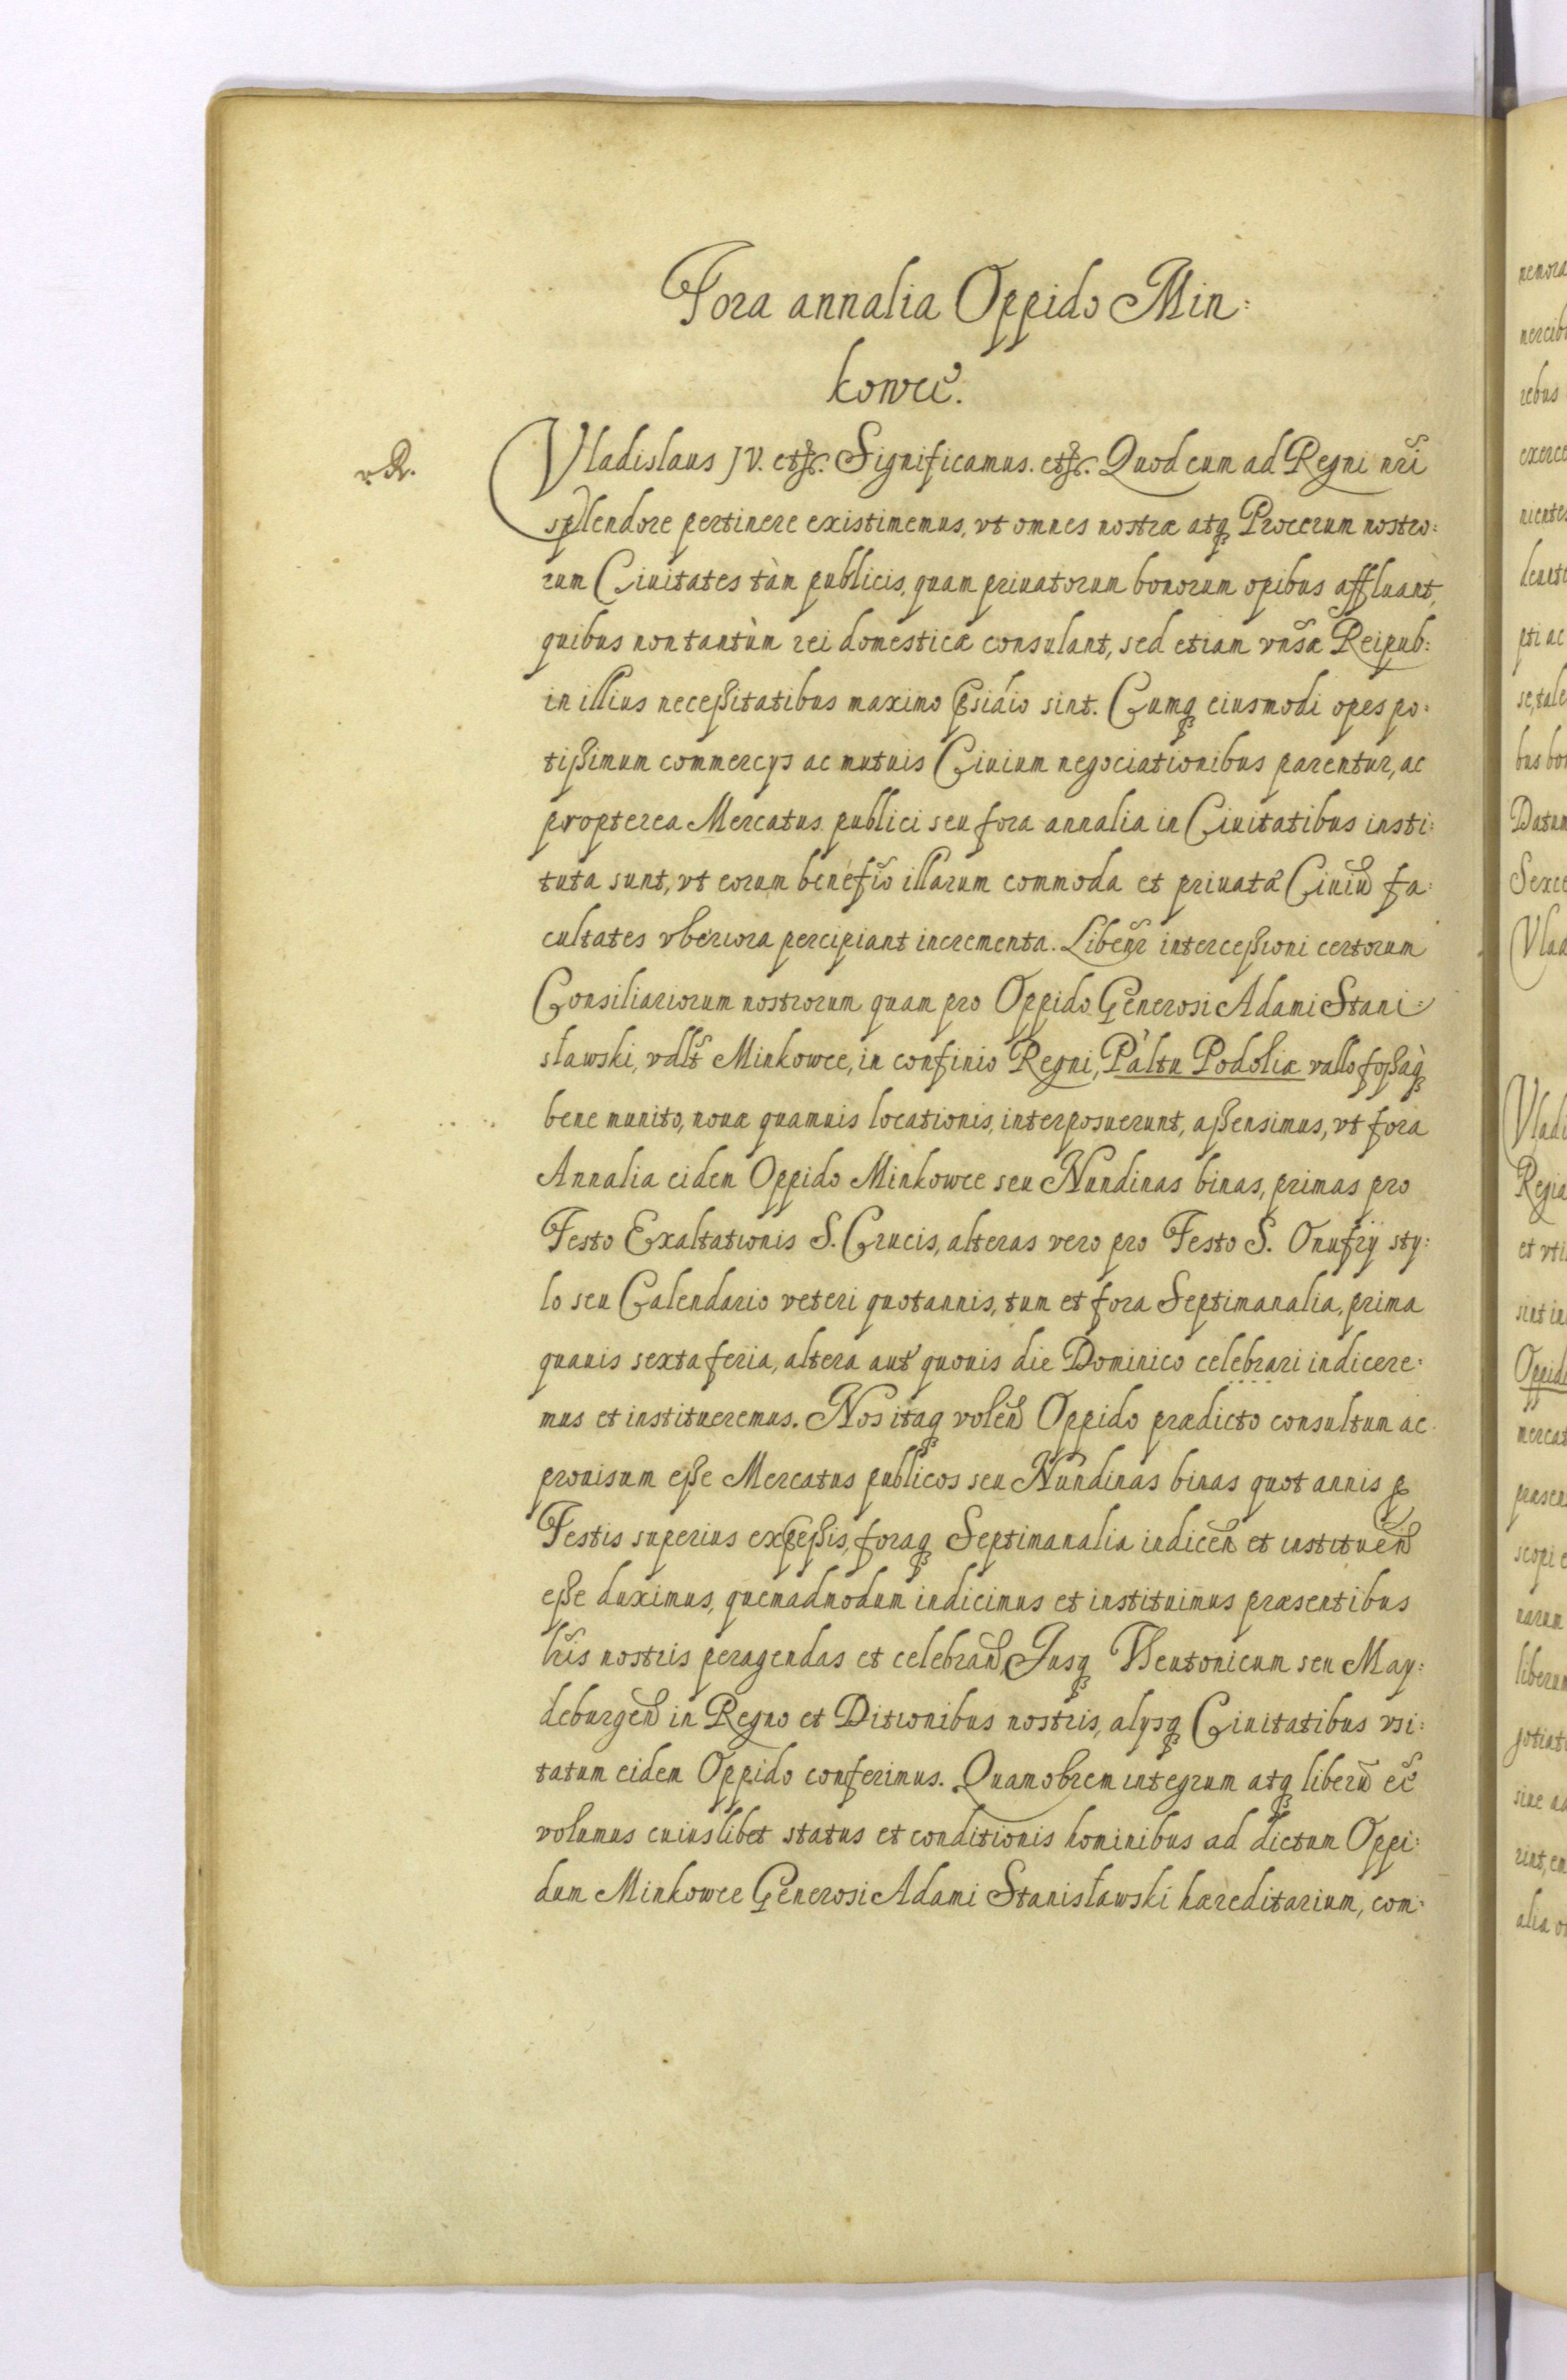 Fora annalia Oppido Min:
kowce.
Vladislaus JV. etc. Significamus. etc. Quod cum ad Regni nri
splendore pertinere existimemus, vt omnes nostræ atq Procerum nostro:
rum Ciuitates tàm publicis, quam priuatorum bonorum opibus affluant,
quibus non tantùm rei domesticæ consulant, sed etiam vnsæ Reipub:
in illius neceßitatibus maximo psidio sint. Cumq eiusmodi opes po:
tißimum commercys ac mutuis Ciuium negociationibus parentur, ac
propterea Mercatus publici seu fora annalia in Ciuitatibus insti:
tuta sunt, vt eorum benefio illarum commoda et priuatæ Ciuiū fa:
cultates vberiora percipiant incrementa. Libenr interceßioni certorum
Consiliariorum nostrorum quam pro Oppido Generosi Adami Stani:
sławski, vdlt Minkowce, in confinio Regni, Paltu Podoliæ vallo foßaq
bene munito, nouæ quamuis locationis, interposuerunt, aßensimus, vt fora
Annalia eidem Oppido Minkowce seu Nundinas binas, primas pro
Festo Exaltationis S. Crucis, alteras vero pro Festo S. Onufrÿ sty:
lo seu Calendario veteri quotannis, tum et fora Septimanalia, prima
quauis sexta feria, altera aut quouis die Dominico celebrari indicere:
mus et institueremus. Nos itaq volen Oppido prædicto consultum ac
prouisum eße Mercatus publicos seu Nundinas binas quot annis p
Festis superius expeßis, foraq Septimanalia indicen et instituen
eße duximus, quemadmodum indicimus et instituimus præsentibus
lris nostris peragendas et celebran, Jusq Theutonicum seu May:
deburgen in Regno et Ditionibus nostris, alysq Ciuitatibus vsi:
tatum eidem Oppido conferimus. Quamobrem integrum atq liberū eē
volumus cuiuslibet status et conditionis hominibus ad dictum Oppi:
dum Minkowce Generosi Adami Stanisławski hæreditarium, com: